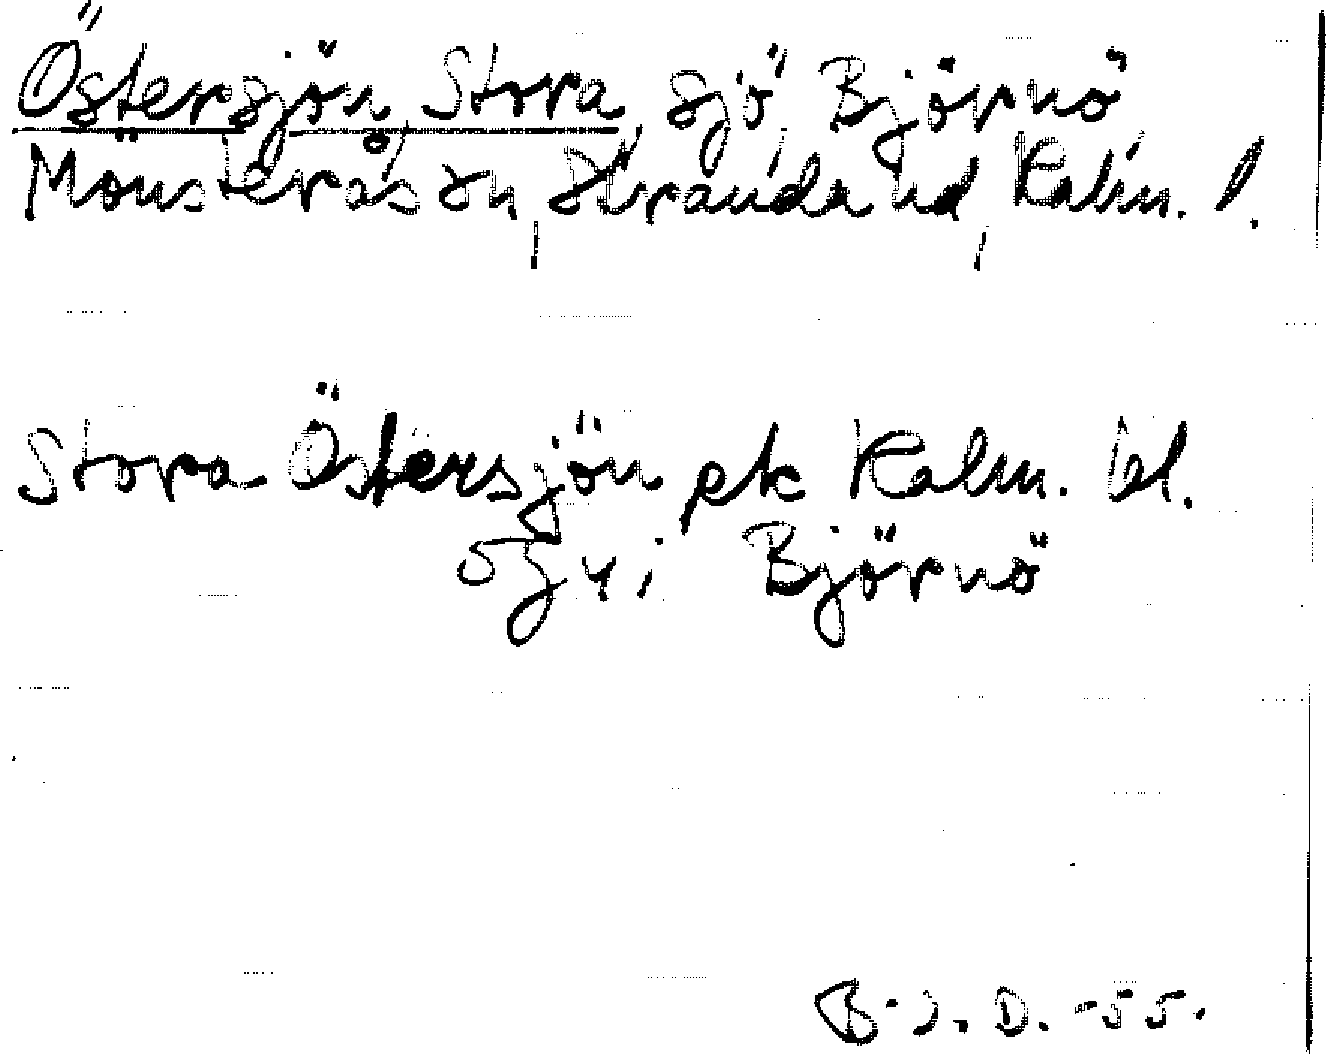 Östersjön, Stora, sjö, Björnö,
Mönsterås sn, Stranda hd, Kalm. l.
Stora Östersjön ek Kalm. bl.
5g4i Björnö
B-J. D. -55.